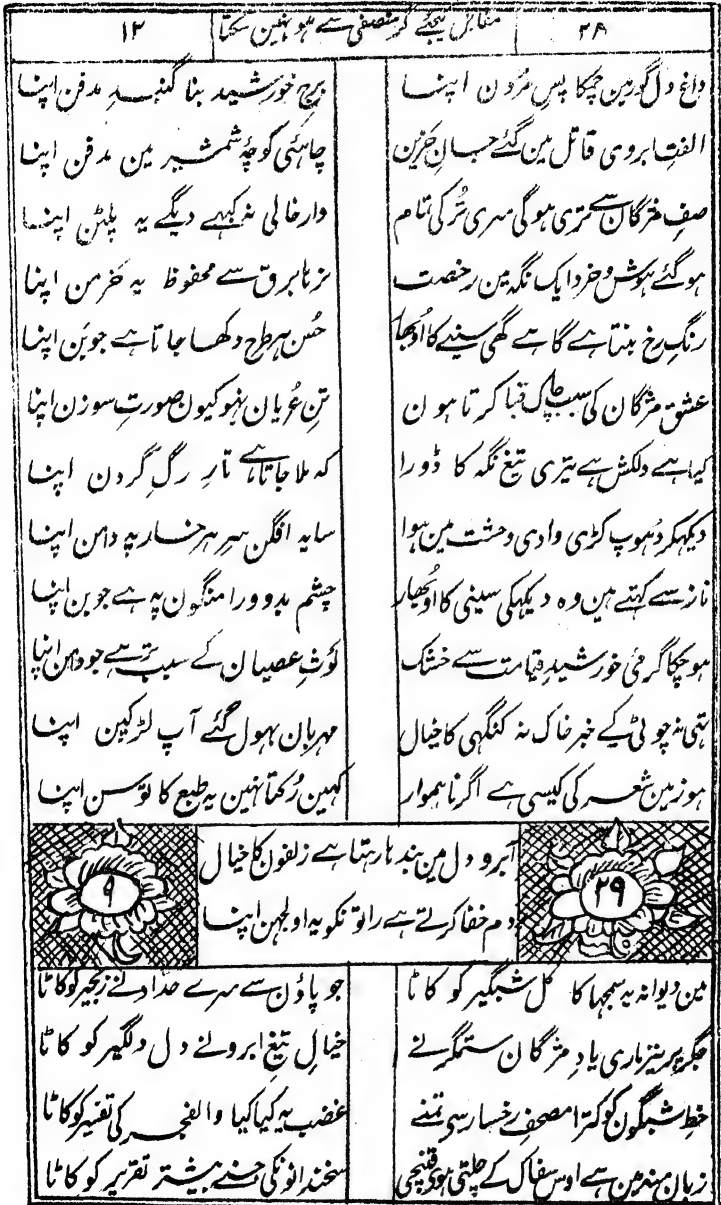 ۲۸ مقابل کیجئے گر منصفی سے ہو نہین سکتا ۱۲
داغ دل گور مین چمکا پس مردن اپنا برج خورشید بنا گنبد مدفن اپنا
الفت ابروی قاتل مین گئے جان حزین چاہئی کوچۂ شمشیر مین مدفن اپنا
صف مژگان سے تری ہوگی مری ترکی تام وار خالی نہ کبہے دیگے یہ پلٹن اپنا
ہو گئے ہوش و خرد ایک نگہ مین رخصت نرہا برق سے محفوظ یہ خرمن اپنا
رنگ رخ بنتا ہے گاہے گھی سینے کا اوبھا حسن ہر طرح دکھا جاتا ہے جوبن اپنا
عشق مژگان کی سبب چاک قبا کرتا ہون تن عریان نہو کیون صورت سوزن اپنا
کیا ہے دلکش ہے تیری تیغ نگہ کا ڈورا کہ ملا جاتا ہے تار رگ گردن اپنا
دیکہکر دہوپ کڑی وادی وحشت مین ہوا سایہ افگن سر ہر خار پہ دامن اپنا
ناز سے کہتے ہین وہ دیکہکی سینی کا اوبھار چشم بد دور امنگون پہ ہے جوبن اپنا
ہو چکا گرمئ خورشید قیامت سے خشک لوث عصیان کے سبب تر ہے جو دامن اپنا
تہی نہ چوٹی کے خبر خاک نہ کنگہی کا خیال مہربان بہول گئے آپ لڑکپن اپنا
ہو زمین شعر کی کیسی ہے اگر ناہموار کہین رکتا نہین یہ طبع کا توسن اپنا
آبرو دل مین بندہا رہتا ہے زلفون کا خیال
دم خفا کرتے ہے راتونکو یہ اولجہن اپنا
۲۹ ۹
مین دیوانہ یہ سمجہا کاکل شبگیر کو کاٹا جو پاؤن سے مرے حداد نے زنجیر کو کاٹا
جگر پر نیز ماری یاد مژگان ستمگر نے خیال تیغ ابرو نے دل دلگیر کو کاٹا
خط شبگون کو کترا مصحف رخسار سی تمنے غضب یہ کیا کیا والفجر کی تفسیر کو کاٹا
زبان منہ مین ہے اوس سفاک کے چلتی ہوئی قینچی سخندانونکی جسنے بیشتر تقریر کو کاٹا